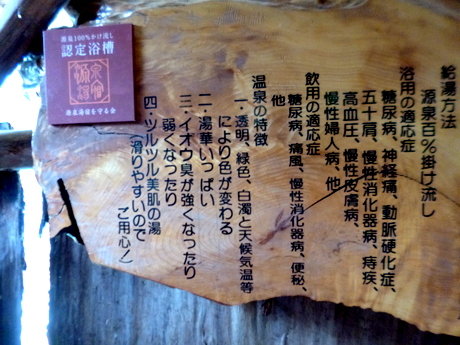 給湯方法
源泉百%掛け流し
浴用の適応症
糖尿病、神経痛、動脈硬化症、
五十肩、慢性消化器病、痔疾、
高血圧、慢性皮膚病、
慢性婦人病、他
飲用の適応症
糖尿病、痛風、慢性消化器病、便秘、
他
温泉の特徴
一・透明、緑色、白濁と天候気温等
により色が変わる
二・湯華いっぱい
三・イオウ臭が強くなったり
弱くなったり
四・ツルツル美肌の湯
(滑りやすいので
ご用心!)
源泉100%かけ流し
認定浴槽
源泉湯宿を守る会